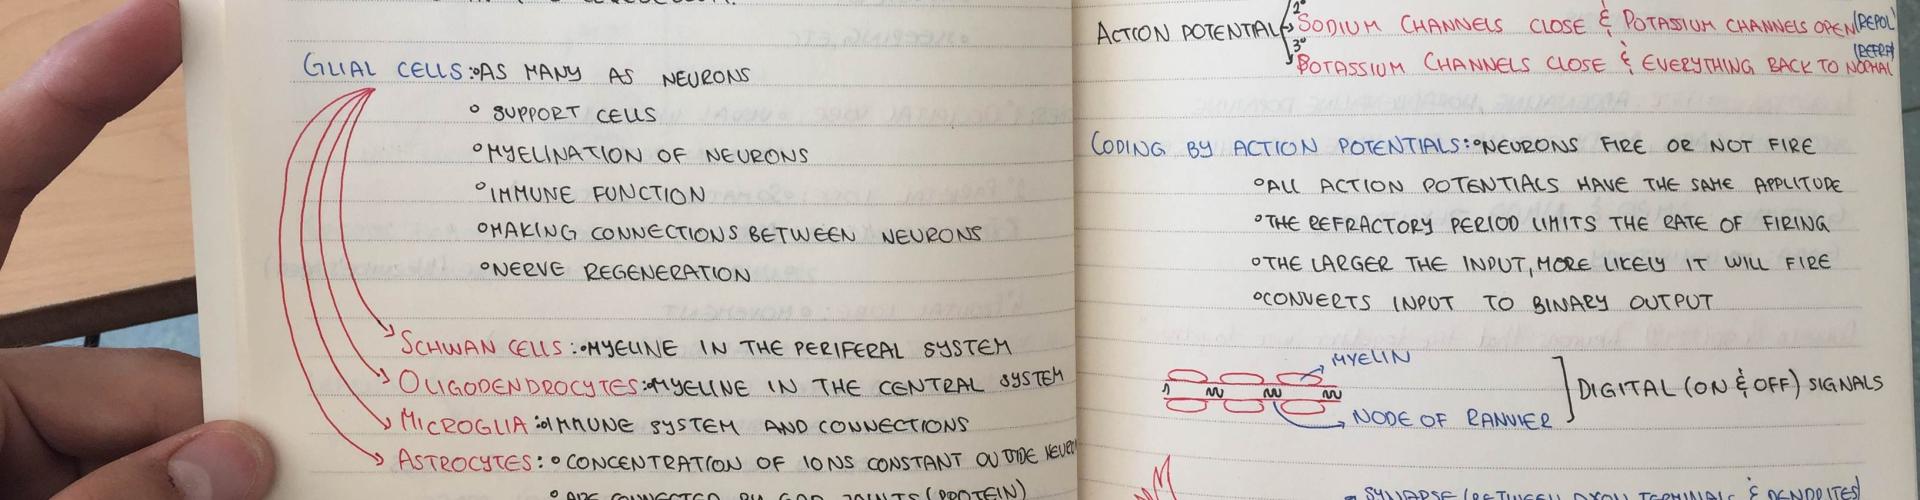 GLIAL CELLS: °AS MANY AS NEURONS
° SUPPORT CELLS
°MYELINATION OF NEURONS
°IMMUNE FUNCTION
°MAKING CONNECTIONS BETWEEN NEURONS
°NERVE REGENERATION
SCHWAN CELLS: °MYELINE IN THE PERIFERAL SYSTEM
OLIGODENDROCYTES: °MYELINE IN THE CENTRAL SYSTEM
MICROGLIA: °IMMUNE SYSTEM AND CONNECTIONS
ASTROCYTES: ° CONCENTRATION OF IONS CONSTANT OUTSIDE
° ARE CONNECTED BY GAP JOINTS (PROTEIN)
ACTION POTENTIAL
2° SODIUM CHANNELS CLOSE & POTASSIUM CHANNELS OPEN (REPOL
3° POTASSIUM CHANNELS CLOSE & EVERYTHING BACK TO NORMAL
CODING BY ACTION POTENTIALS: °NEURONS FIRE OR NOT FIRE
°ALL ACTION POTENTIALS HAVE THE SAME APPLITUDE
°THE REFRACTORY PERIOD LIMITS THE RATE OF FIRING
°THE LARGER THE INPUT, MORE LIKELY IT WILL FIRE
°CONVERTS INPUT TO BINARY OUTPUT
MYELIN
NODE OF RANVIER
DIGITAL (ON & OFF) SIGNALS
SYNAPSE (BETWEEN AXON TERMINALS & DENDRITES)